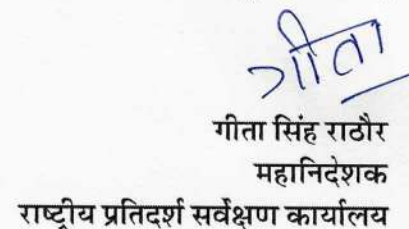 गीता
गीता सिंह राठौर
महानिदेशक
राष्ट्रीय प्रतिदर्श सर्वेक्षण कार्यालय